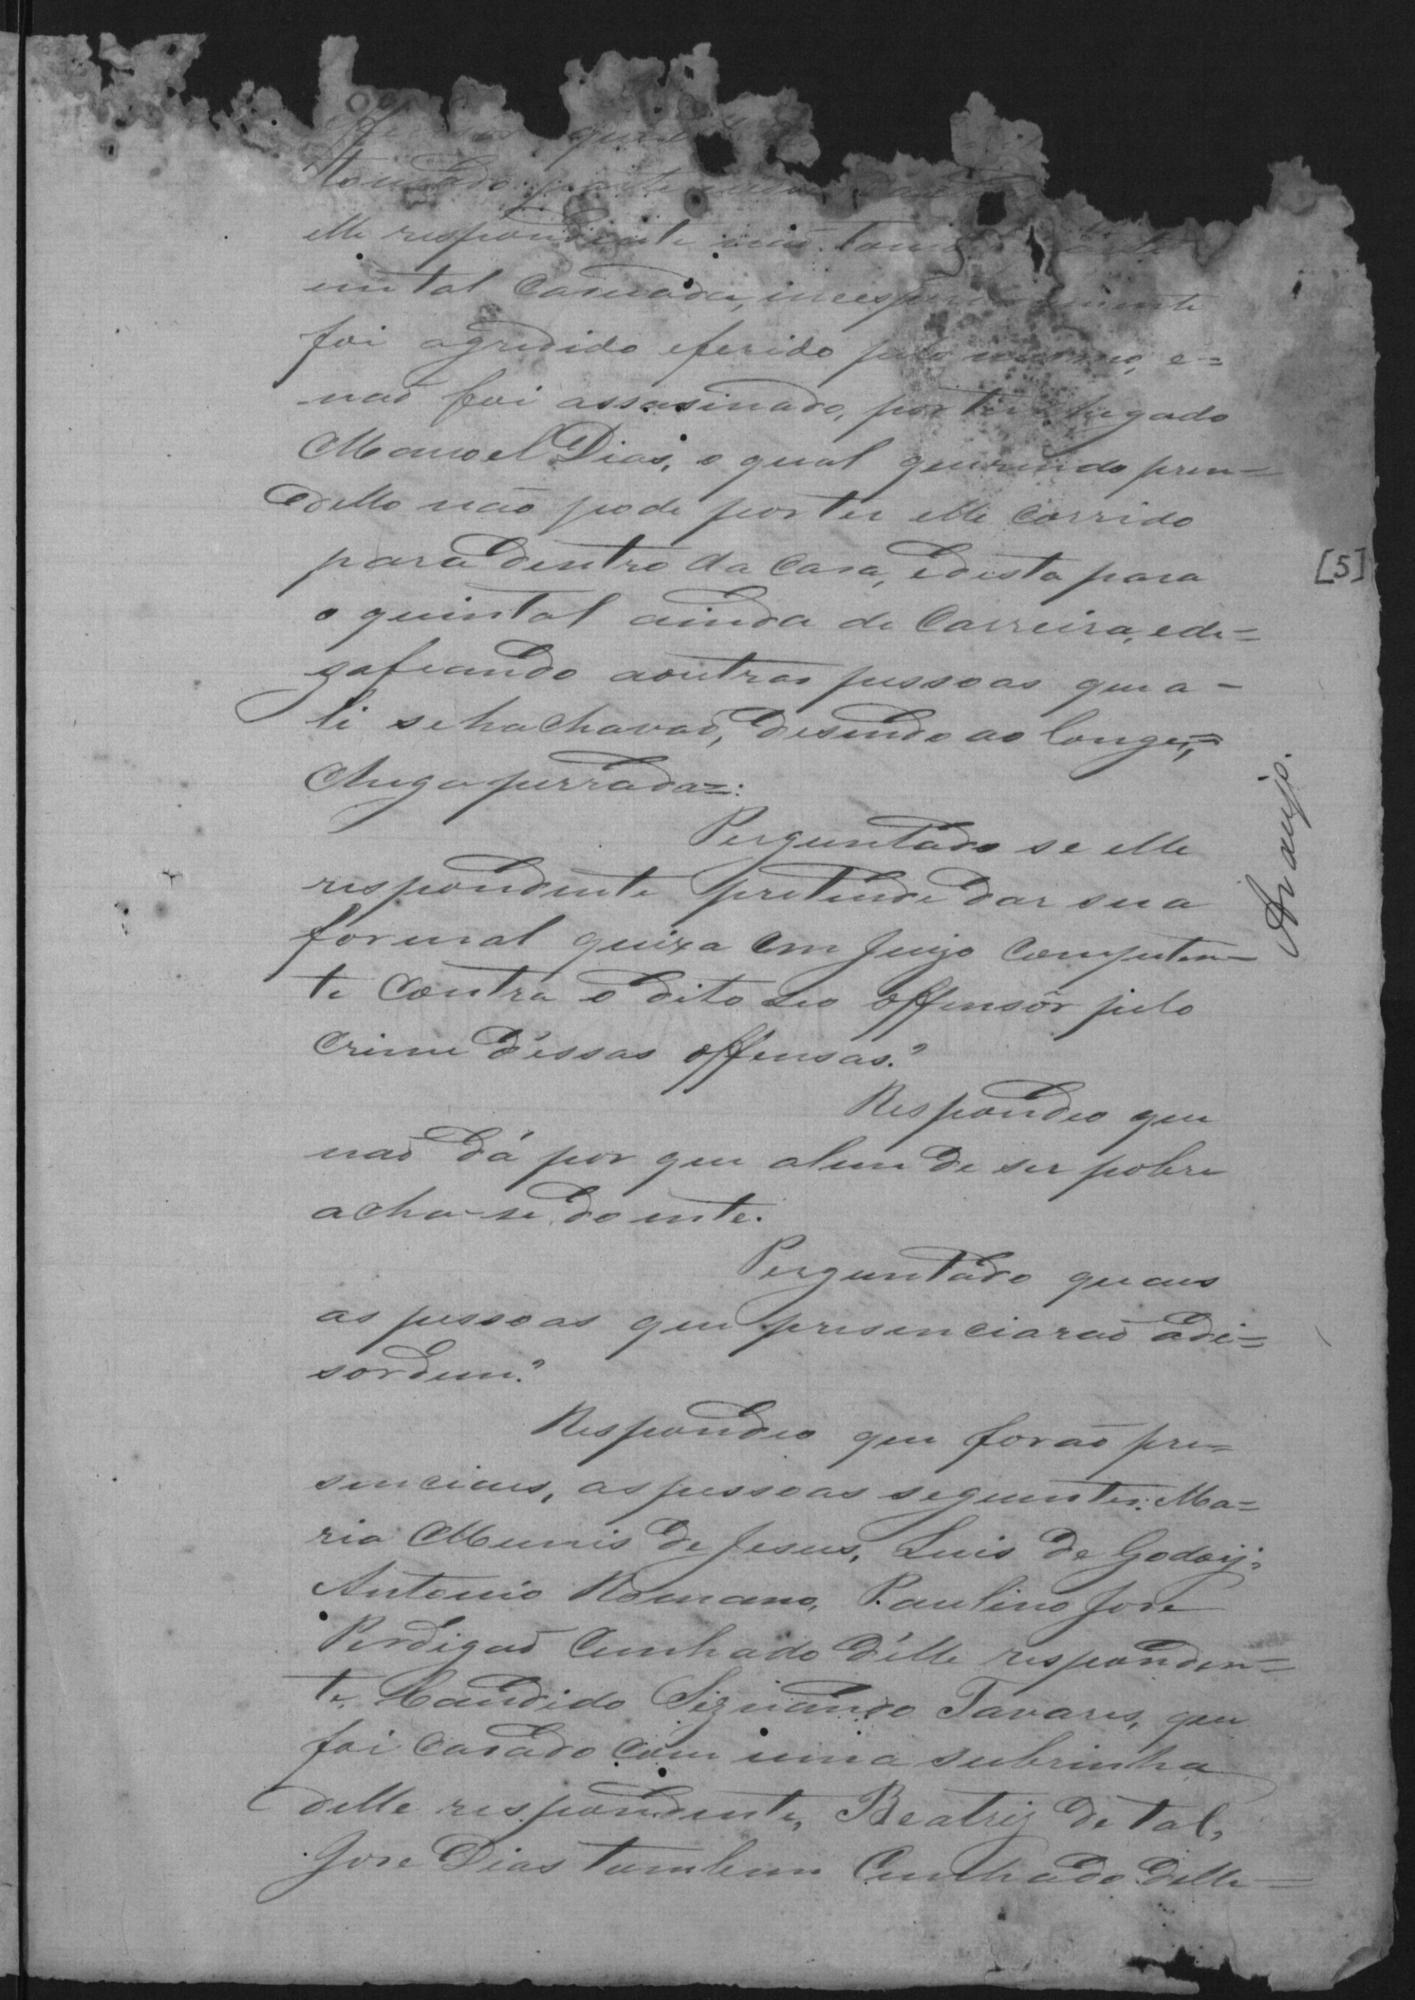 tomado parte
elle respondente não tom
em tal caçuada, inesp mente
foi agredido eferido pelo mesmo, e=
naõ foi assasinado, por ter chegado
Manoel Dias, o qual querendo pren=
dello não pode por ter elle corrido
para dentro da casa, edesta para
o quintal ainda de carreira, ede=
safeando aoutras pessoas que a-
li sehachavaõ, disendo ao longe,=
Perguntado se elle
respondente pretende dar sua
formal queixa em Juizo competen=
te contra o dito seo offensôr pelo
crime d'éssas offensas?
Respondeo que
naõ dá por que alem de ser pobre
acha-se doente.
Perguntado quaes
as pessoas que presenciaraõ adi=
sordem?
Respondeo que foraõ pre=
senciaes, as pessoas seguintes: Ma=
ria Munis de Jesus, Luis de Godoÿ,
Antonio Romano, Paulino José
Perdigaõ Cunhado d'élle responden=
te, Candido Siznando Tavares, que
foi casado com uma subrinha
delle respondente, Beatriz de tal,
José Dias tambem Cunhado delle=
Araujo.
[5]